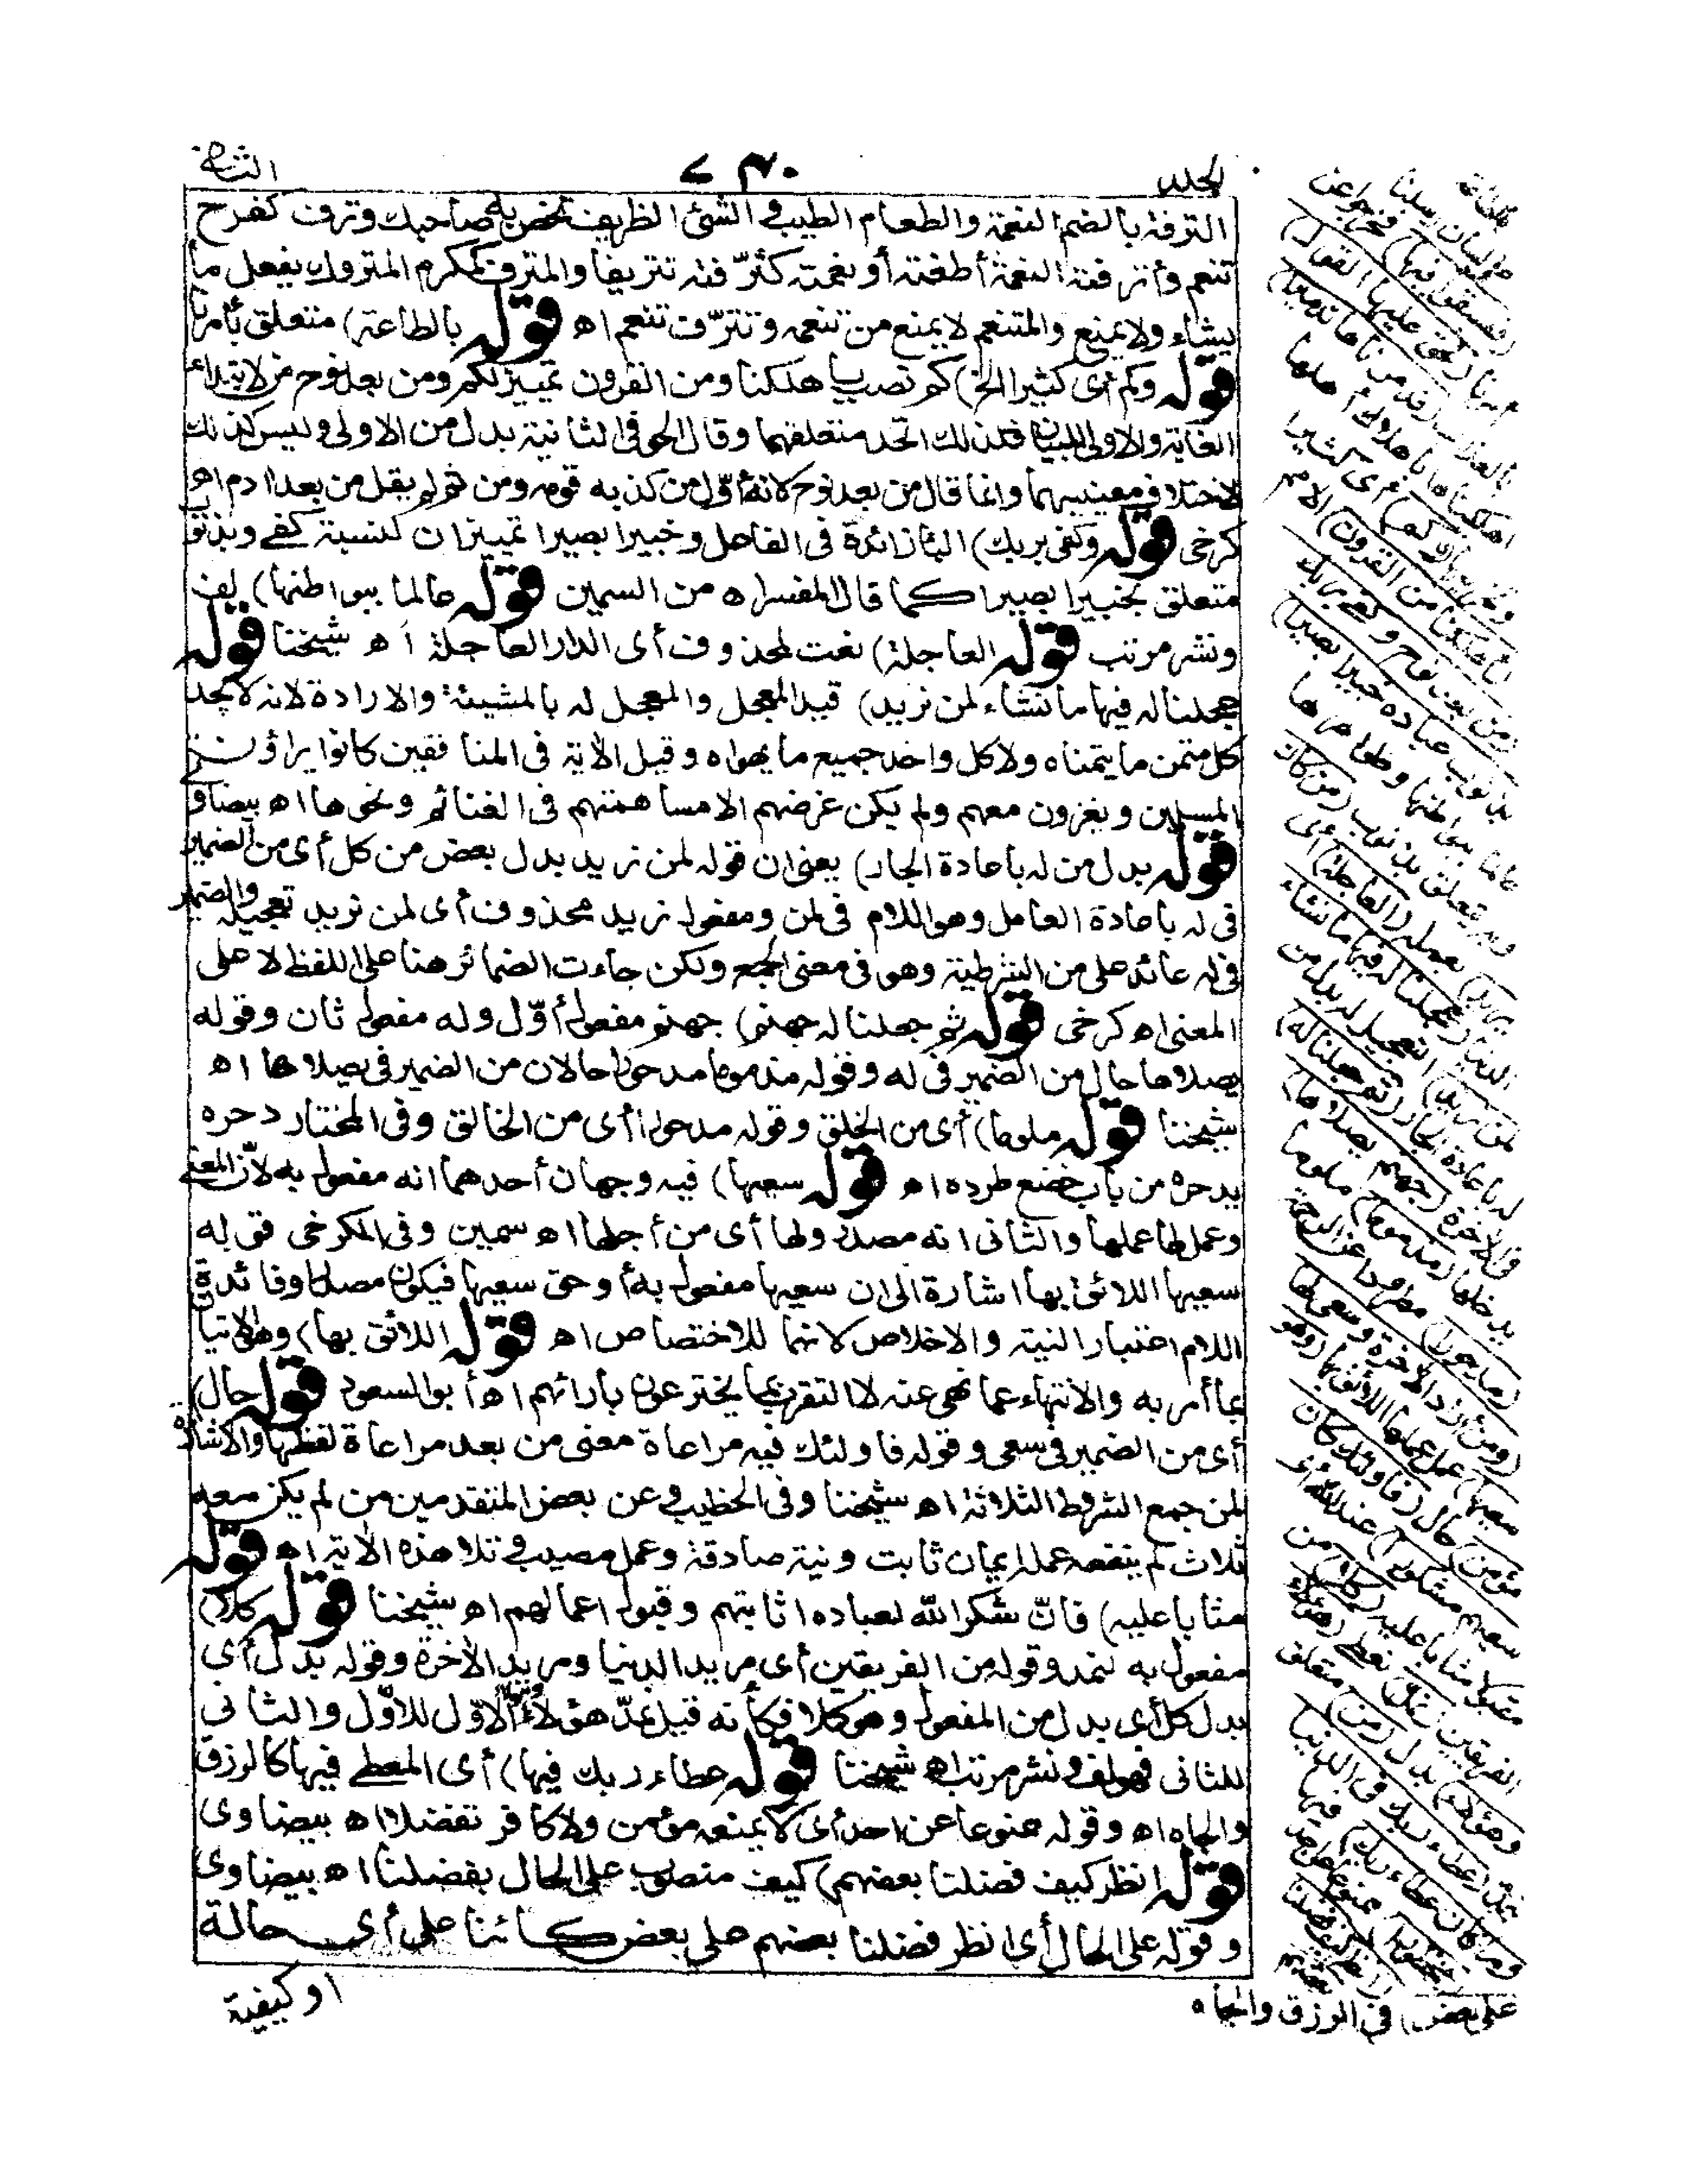 الجلد ٧٣٠ الثانى
الترفة بالضم النعمة والطعام الطيب والشئ الظريف تخص به صاحبك وترف كفرح
تنعم وأترفته النعمة أطغته أو نعمته كترّفته تتريفا والمترف كمكرم المتروك يفعل ما
يشاء ولا يمنع والمتنعم لا يمنع من تنعمه وتترّف تنعم اه قوله بالطاعة) متعلق بأمرنا
قوله وكم أى كثيرا الخ) كم نصب باهلكنا ومن القرون تمييز لكم ومن بعد نوح من لابتداء
الغاية والاولى للبيان فلذلك اتحد متعلقهما وقال الحوفى الثانية بدل من الاولى وليس كذلك
لاختلاف معنييهما وانما قال من بعد نوح لانه أوّل من كذبه قومه ومن ثم لم يقل من بعد ادم اه
كرخى قوله وكفى بربك) الباء زائدة فى الفاعل وخبيرا بصيرا تمييزان لنسبة كفى وبذنوب
متعلق بخبيرا بصيرا كما قال المفسر اه من السمين قوله عالما ببواطنها) لف
ونشر مرتب قوله العاجلة) نعت لمحذوف أى الدار العاجلة اه شيخنا قوله
عجلنا له فيها ما نشاء لمن نريد) قيد المعجل والمعجل له بالمشيئة والارادة لانه لا يجد
كل متمن ما يتمناه ولا كل واحد جميع ما يهواه وقيل الاٰية فى المنافقين كانوا يراؤن
المسلمين ويغزون معهم ولم يكن غرضهم الا مساهمتهم فى الغنائم ونحوها اه بيضاوى
قوله بدل من له باعادة الجار) يعنى ان قوله لمن نريد بدل بعض من كل أى من الضمير
فى له باعادة العامل وهو اللام فى لمن ومفعول نريد محذوف أى لمن نريد تعجيله والضمير
فى له عائد على من الشرطية وهو فى معنى الجمع ولكن جاءت الضمائر هنا على اللفظ لا على
المعنى اه كرخى قوله ثم جعلنا له جهنم) جهنم مفعول أوّل وله مفعول ثان وقوله
يصلاها حال من الضمير فى له وقوله مذموما مدحورا حالان من الضمير فى يصلاها اه
شيخنا قوله ملوما) أى من الخلق وقوله مدحورا أى من الخالق وفى المختار دحره
يدحره من باب خضع طرده اه قوله سعيها) فيه وجهان أحدهما انه مفعول به لانّ المعنى
وعمل لها عملها والثانى انه مصدر ولها أى من أجلها اه سمين وفى الكرخى قوله
سعيها اللائق بها اشارة الى ان سعيها مفعول به أو حق سعيها فيكون مصدرا وفائدة
اللام اعتبار النية والاخلاص لانها للاختصاص اه قوله اللائق بها) وهو الاتيان
بما أمر به والانتهاء عما نهى عنه لا التقرب بما يخترعون بآرائهم اه أبو السعود قوله حال)
أى من الضمير فى سعى وقوله فاولئك فيه مراعاة معنى من بعد مراعاة لفظها والاشارة
لمن جمع الشروط الثلاثة اه شيخنا وفى الخطيب وعن بعض المتقدمين من لم يكن معه
ثلاث لم ينفعه عمله ايمان ثابت ونية صادقة وعمل مصيب وتلا هذه الاٰية اه قوله
مثابا عليه) فانّ شكر الله لعباده اثابتهم وقبول اعمالهم اه شيخنا قوله كلا)
مفعول به لنمد وقوله من الفريقين أى مريد الدنيا ومريد الاٰخرة وقوله بدل أى
بدل كل أى بدل من المفعول وهو كلا فكأنه قيل نمدّ هؤلاء وهؤلاء الاوّل للاوّل والثانى
للثانى فهو لف ونشر مرتب اه شيخنا قوله عطاء ربك فيها) أى المعطى فيها كالرزق
والجاه اه وقوله ممنوعا عن احد أى لا يمنعه مؤمن ولا كافر تفضلا اه بيضاوى
قوله انظر كيف فضلنا بعضهم) كيف منصوب على الحال بفضلنا اه بيضاوى
وقوله على الحال أى انظر فضلنا بعضهم على بعض كائنا على أى حالة
او كيفية
(ففسقوا فيها) فخرجوا عن
أمرنا (فحق عليها القول)
بالعذاب (فدمرناها تدميرا)
اهلكناها باهلاك أهلها
(وكم) أى كثيرا
(أهلكنا من القرون) الامم
(من بعد نوح وكفى بربك
بذنوب عباده خبيرا بصيرا)
عالما ببواطنها وظواهرها
وبه يتعلق بذنوب (من كان
يريد) بعمله (العاجلة) أى
الدنيا (عجلنا له فيها ما نشاء
لمن نريد) التعجيل له بدل من
له باعادة الجار (ثم جعلنا له)
فى الاٰخرة (جهنم يصلاها)
يدخلها (مذموما) ملوما
(مدحورا) مطرودا عن الرحمة
(ومن أراد الاٰخرة وسعى لها
سعيها) عمل عملها اللائق بها (وهو
مؤمن) حال (فاولئك كان
سعيهم مشكورا) عند الله أى
مقبولا مثابا عليه (كلا) من
الفريقين (نمد) نعطى (هؤلاء
وهؤلاء) بدل (من) متعلق
بنمد (عطاء ربك) فى الدنيا
(وما كان عطاء ربك) فيها
(محظورا) ممنوعا عن احد
(انظر كيف فضلنا بعضهم
على بعض) فى الرزق والجاه